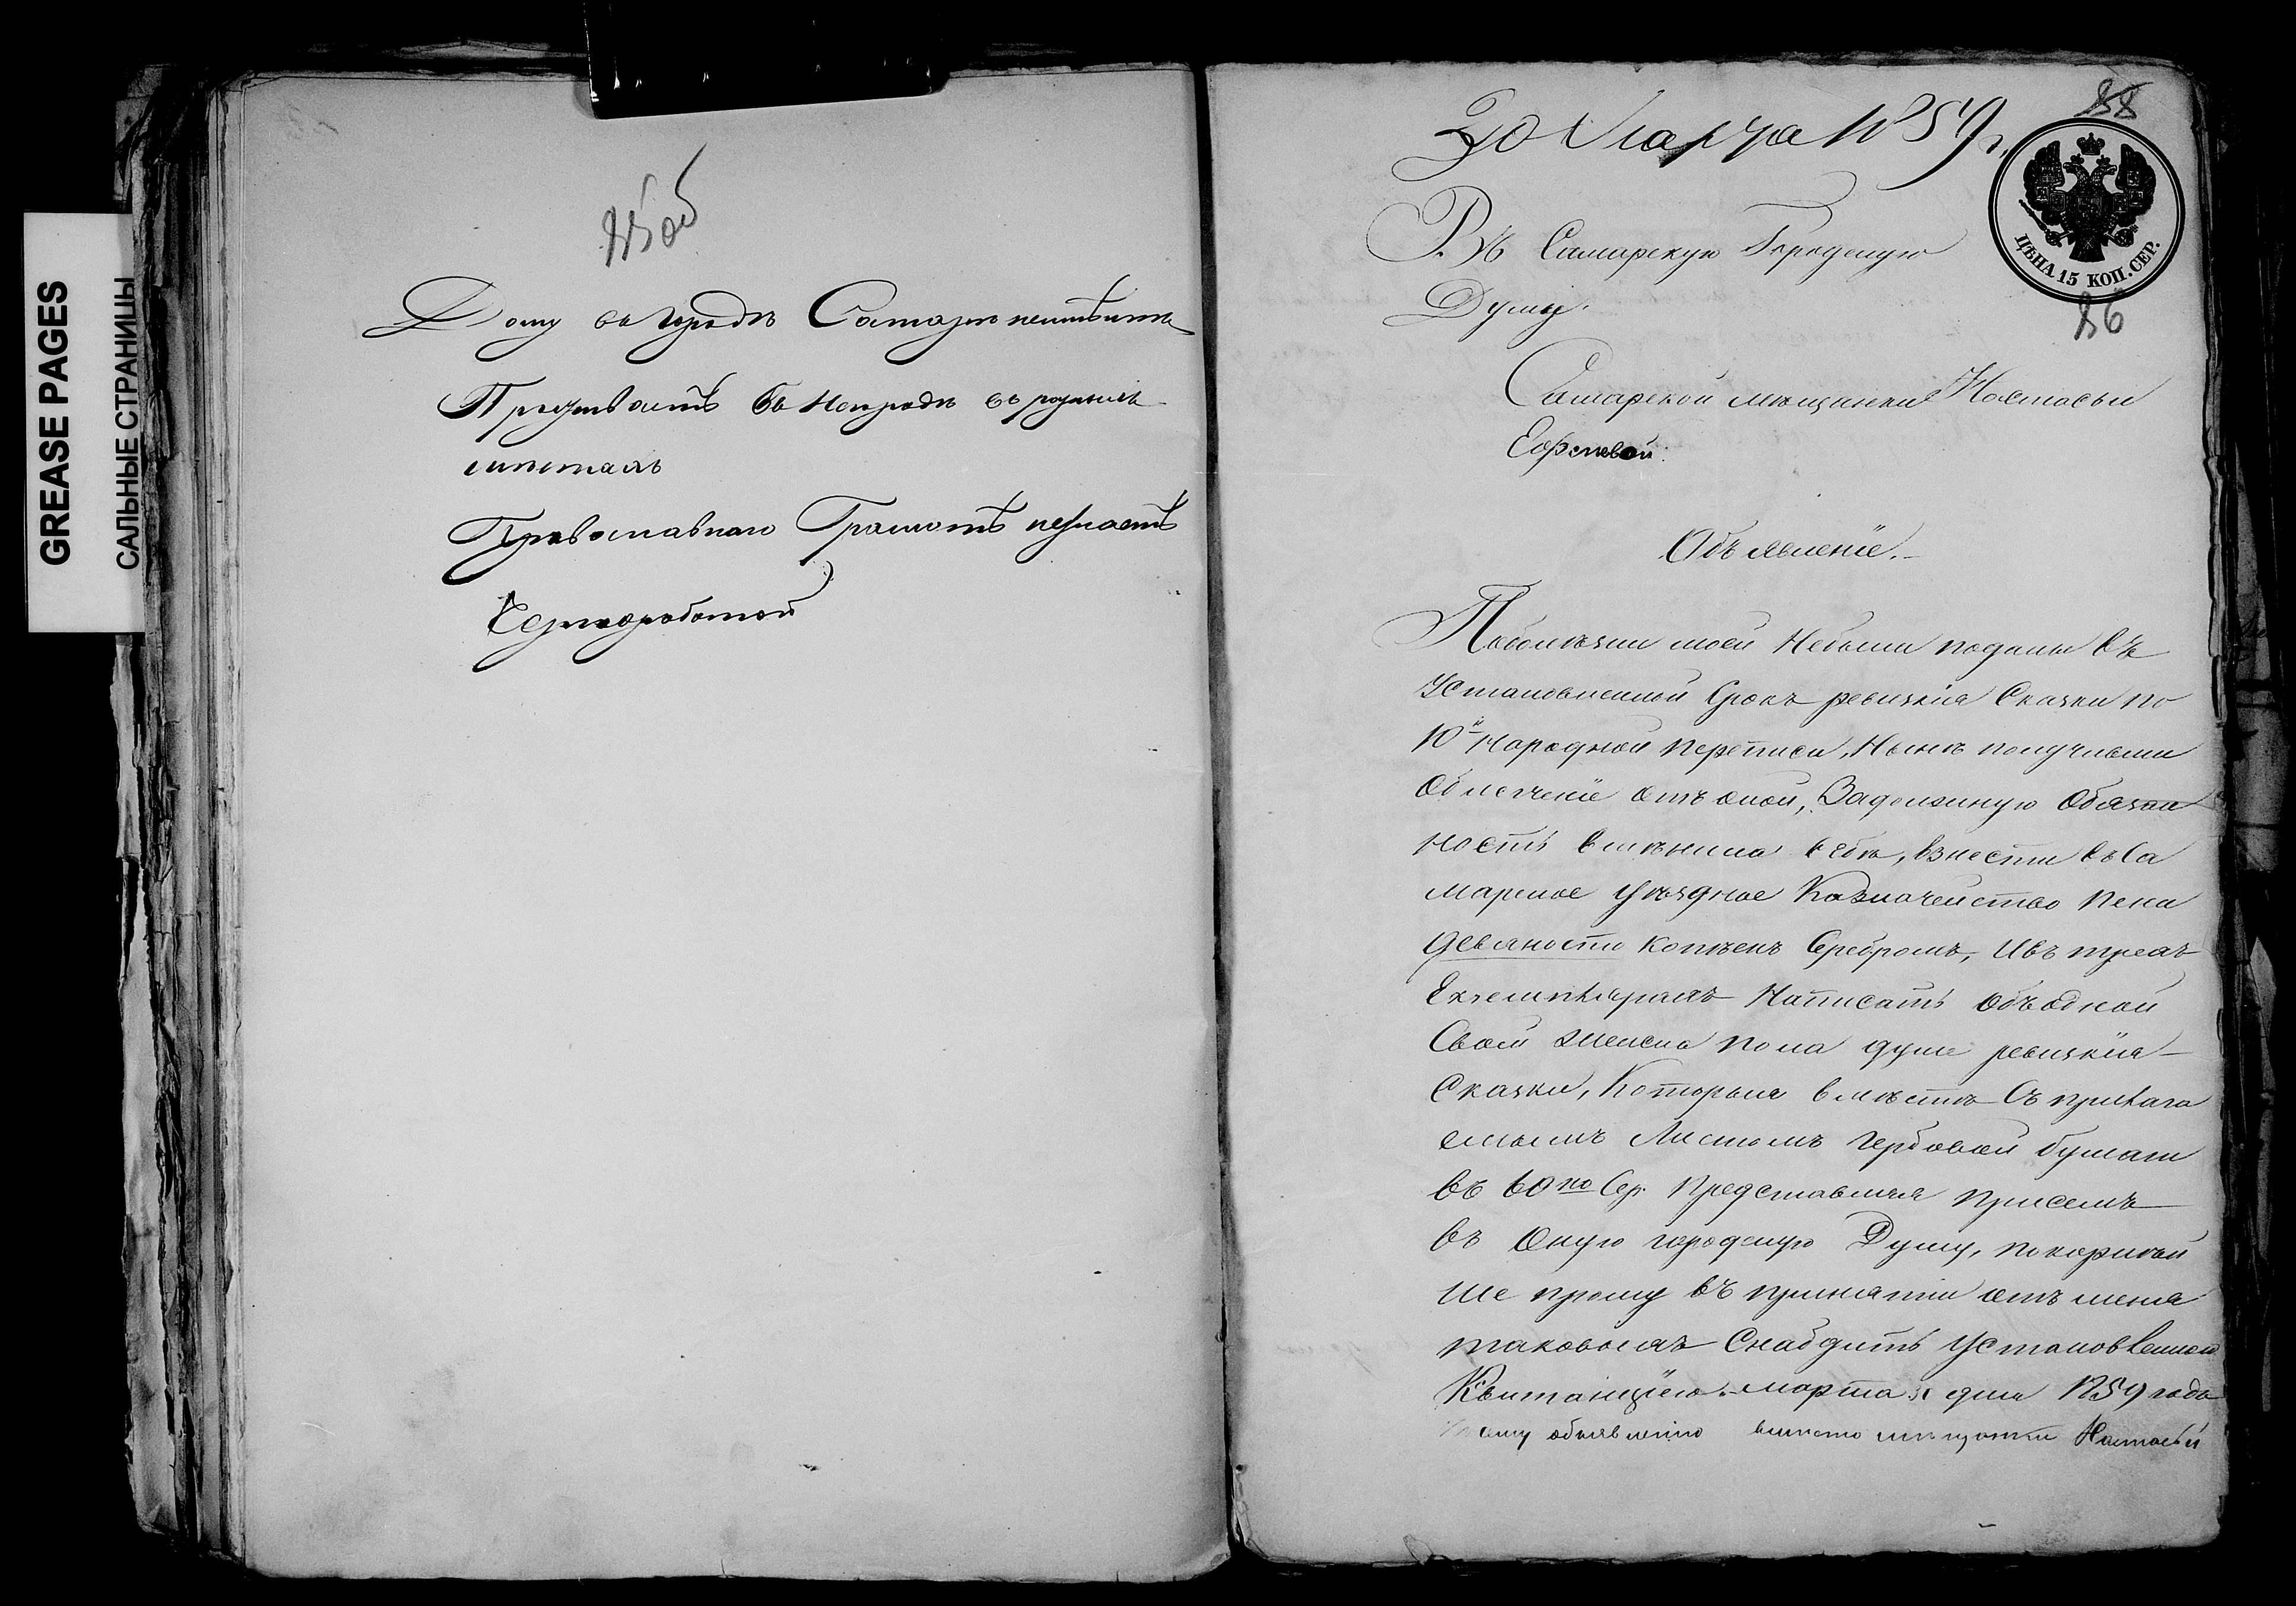 GREASE PAGES
САЛЬНЫЕ СТРАНИЦЫ
85об
Дому въ городѣ Самарѣ неимѣитъ
Проживаетъ въ городѣ въ разныхъ
мѣстахъ
Православнаго Грамотѣ незнаетъ
Черноработой
30 Марта 1859 г.
88
ЦѢНА 15 КОП. СЕР.
86
Въ Самарскую Городскую
Думу.
Самарской мѣщанки Настасьи
Объявленіе.
Поболѣзни моей Небыли поданы въ
Установленной Срокъ ревизкія Сказки по
10й Народной переписи, Нынѣ получивши
Облегченіе отъ оной, Задолжную Обязан
ность вмѣнила себѣ, взнести въ Са
марское Уѣздное Казначейство пени
девяности копѣекъ Серебромъ, Ивъ трехъ
Екземплярахъ Написать объодной
Своей женска пола душе ревизкія
Сказки, Которыя вмѣсте Съ прилага
емымъ Листомъ гербовой бумаги
въ 60 ко Сер. Представляя присемъ
въ Оную городскую Думу, покорнѣй
ше прошу въ принятіи отъ меня
таковыхъ Снабдить Установленной
Квитанціею. марта дня 1859 года
сему объявленію вместо мѣщанки Настасьи